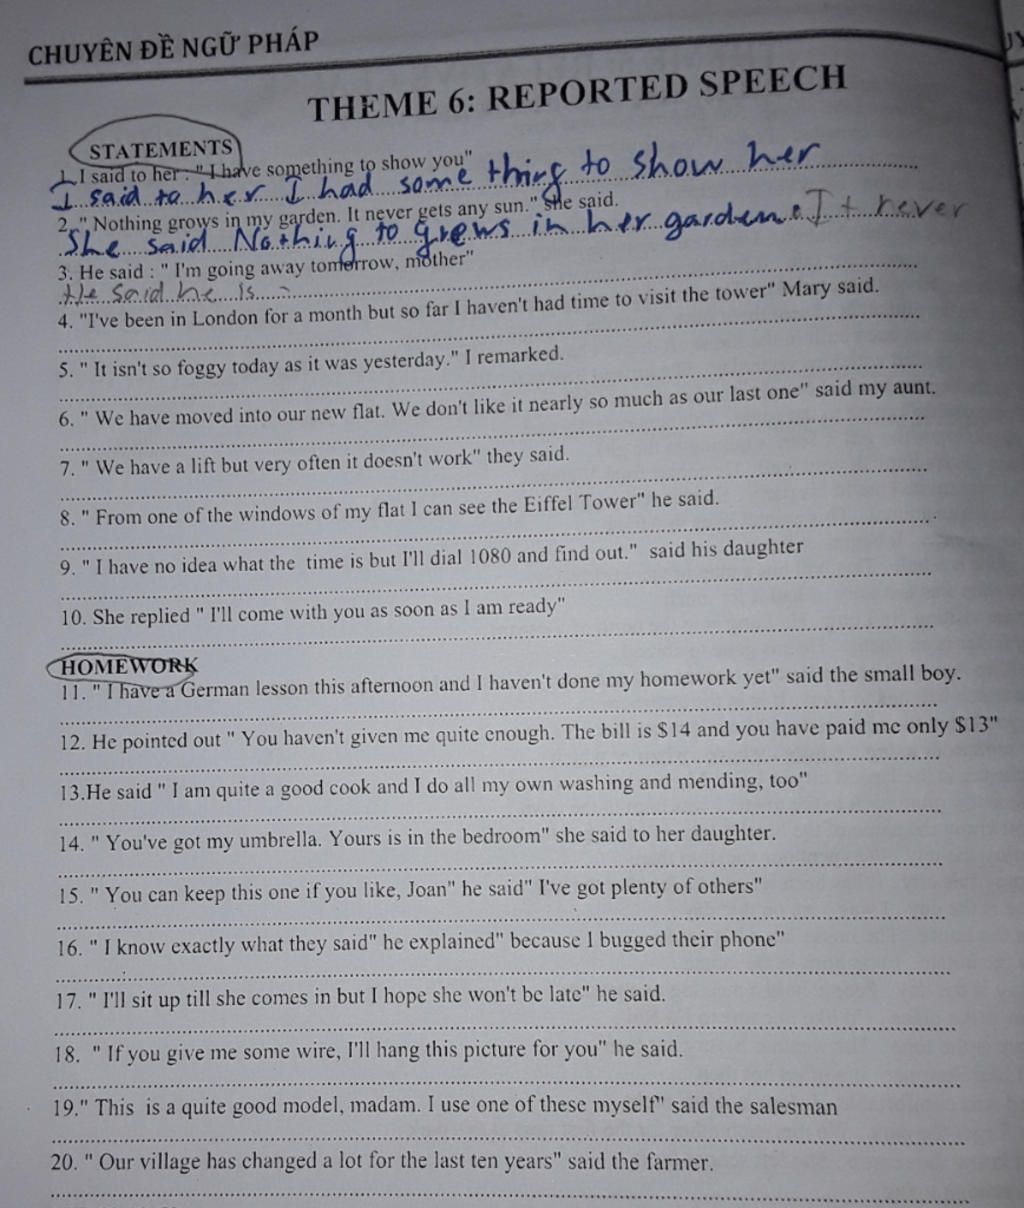 CHUYÊN ĐỀ NGỮ PHÁP
THEME 6: REPORTED SPEECH
STATEMENTS
1. I said to her : " I have something to show you"
I said to her I had some thing to show her
2. " Nothing grows in my garden. It never gets any sun." she said.
She said Nothing to grews in her garden. It never
3. He said : " I'm going away tomorrow, mother"
He said he is
4. "I've been in London for a month but so far I haven't had time to visit the tower" Mary said.
5. " It isn't so foggy today as it was yesterday." I remarked.
6. " We have moved into our new flat. We don't like it nearly so much as our last one" said my aunt.
7. " We have a lift but very often it doesn't work" they said.
8. " From one of the windows of my flat I can see the Eiffel Tower" he said.
9. " I have no idea what the time is but I'll dial 1080 and find out." said his daughter
10. She replied " I'll come with you as soon as I am ready"
HOMEWORK
11. " I have a German lesson this afternoon and I haven't done my homework yet" said the small boy.
12. He pointed out " You haven't given me quite enough. The bill is $14 and you have paid me only $13"
13.He said " I am quite a good cook and I do all my own washing and mending, too"
14. " You've got my umbrella. Yours is in the bedroom" she said to her daughter.
15. " You can keep this one if you like, Joan" he said" I've got plenty of others"
16. " I know exactly what they said" he explained" because I bugged their phone"
17. " I'll sit up till she comes in but I hope she won't be late" he said.
18. " If you give me some wire, I'll hang this picture for you" he said.
19." This is a quite good model, madam. I use one of these myself" said the salesman
20. " Our village has changed a lot for the last ten years" said the farmer.